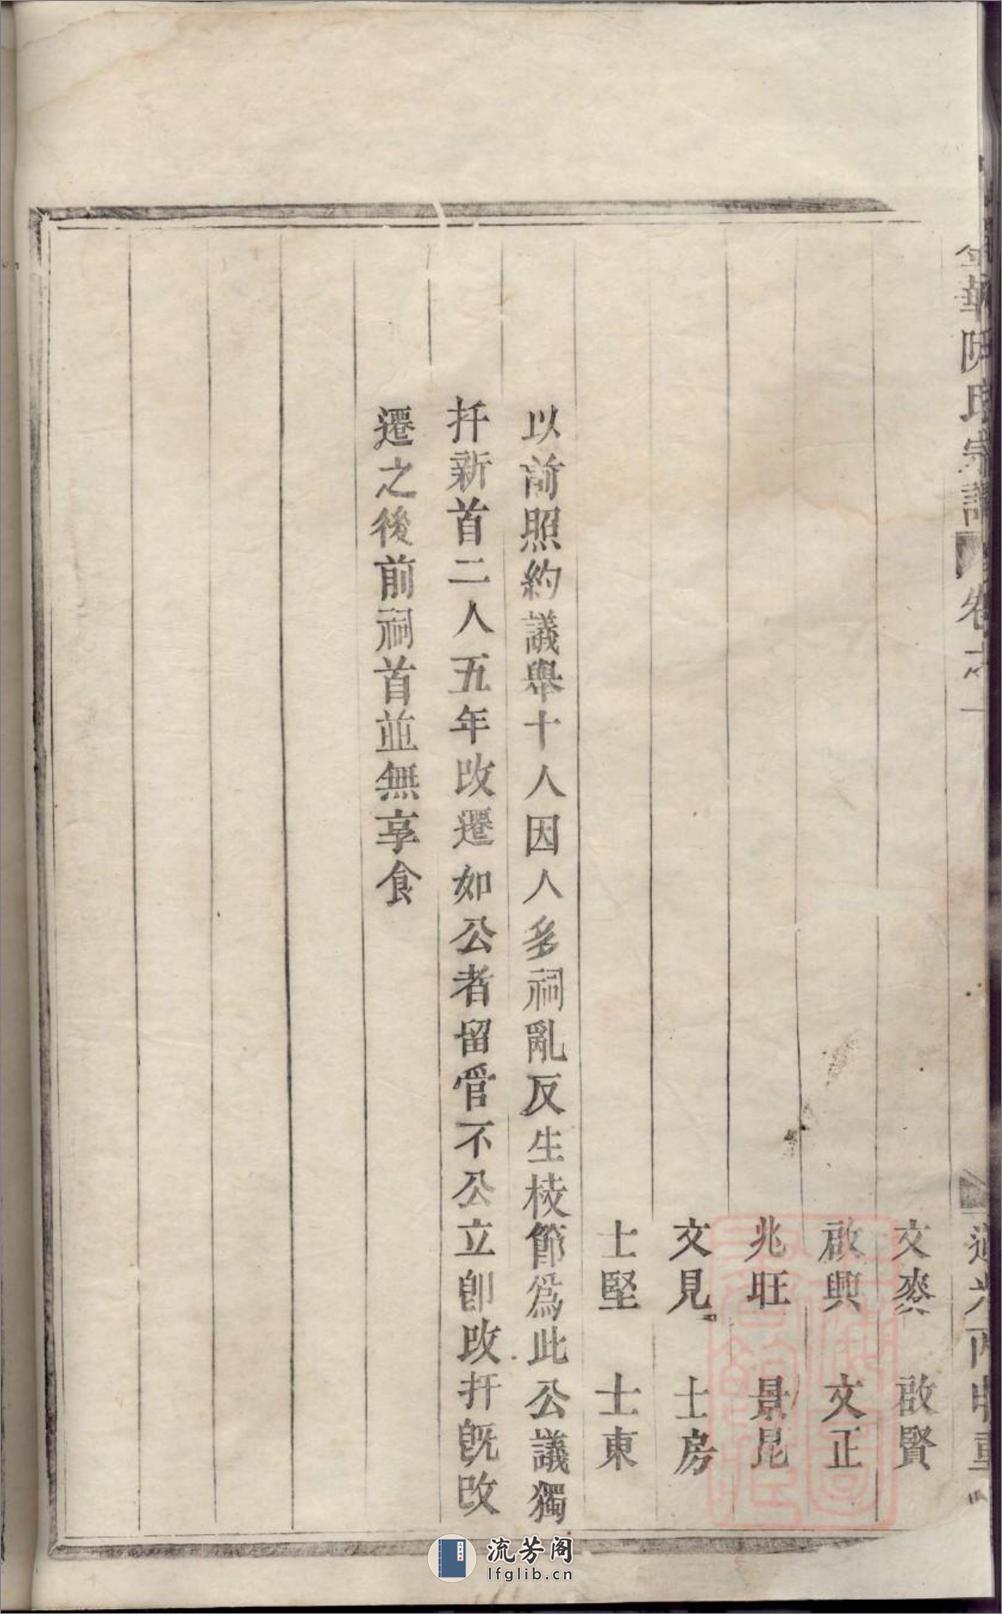 文燦　啟賢
啟興　文正
兆旺　景昆
文見　士房
士堅　士東
以前照約議舉十人因人多祠亂反生枝節為此公議獨
扦新首二人五年改遷如公者留管不公立即改扦既改
遷之後前祠首並無享食
流芳阁
lfglib.cn